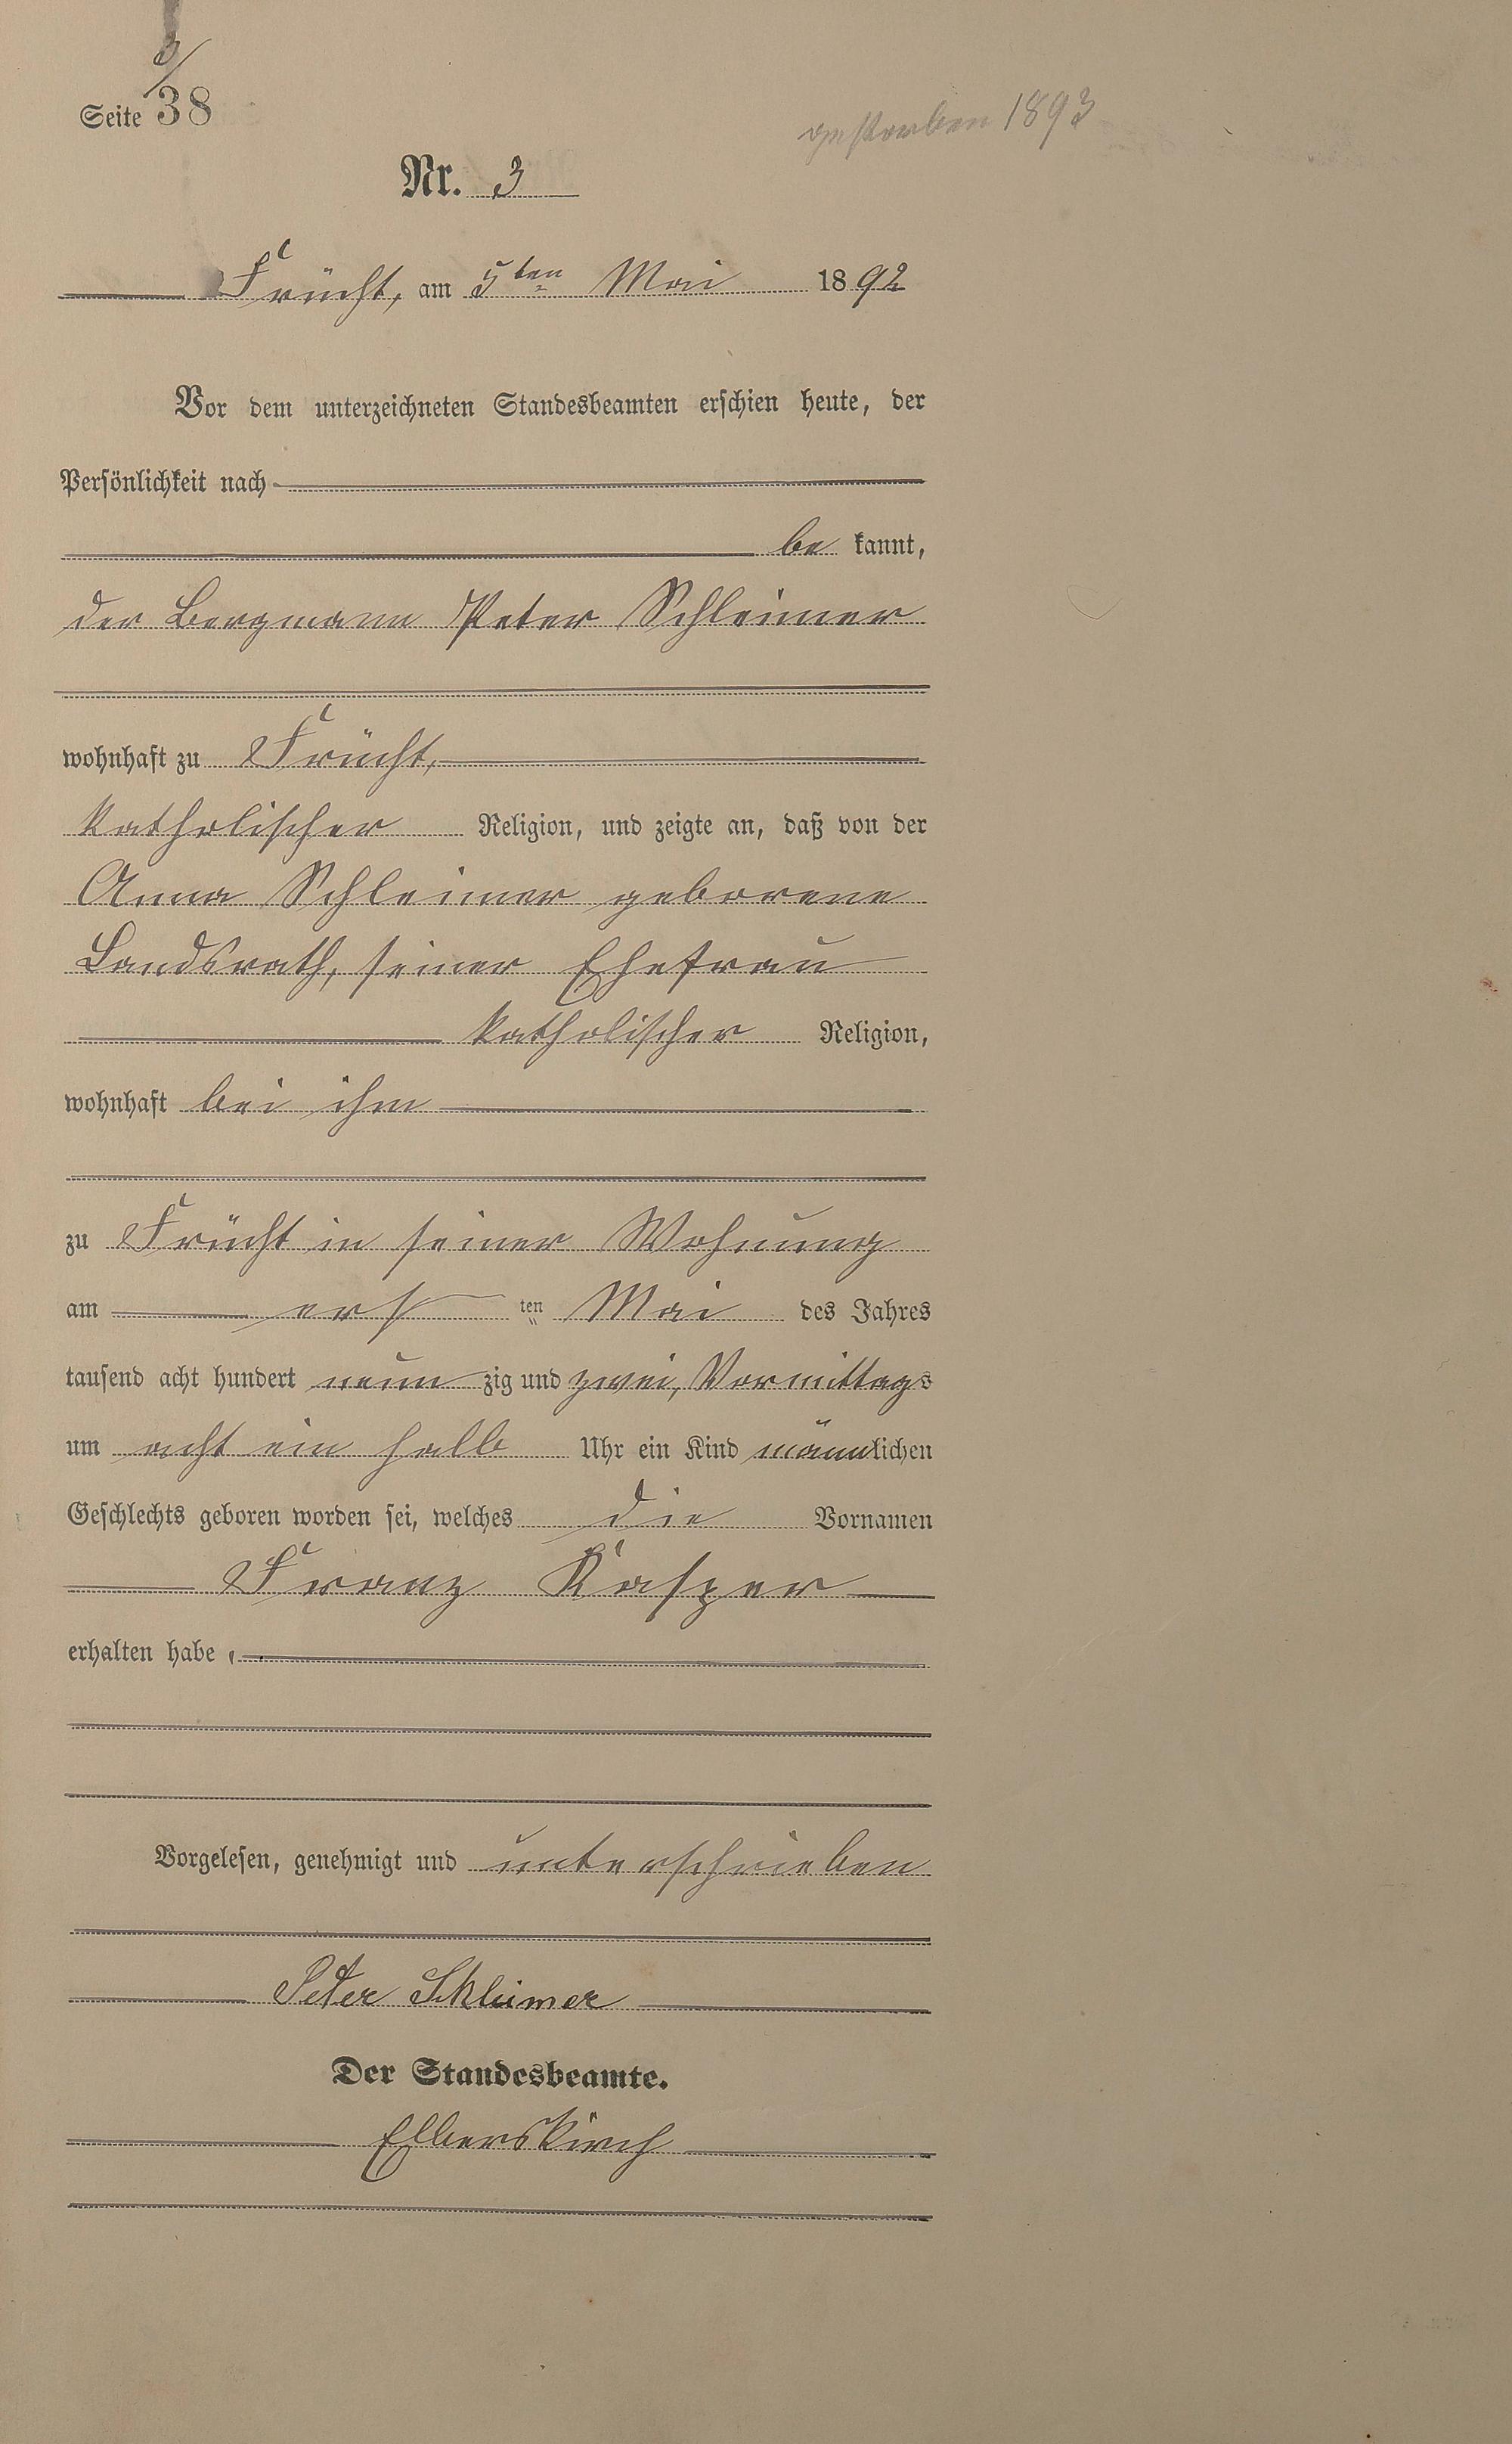 3/
Seite 38
gestorben 1893
Nr. 3
Frücht, am 5ten Mai 1892
Vor dem unterzeichneten Standesbeamten erschien heute, der
Persönlichkeit nach
be kannt,
der Bergmann Peter Schleimer
wohnhaft zu Frücht,
katholischer Religion, und zeigte an, daß von der
Anna Schleimer geborene
Landsrath, seiner Ehefrau
katholischer Religion,
wohnhaft bei ihm
zu Frücht in seiner Wohnung
am erst ten Mai des Jahres
tausend acht hundert neun zig und zwei, Vormittags
um acht ein halb Uhr ein Kind männlichen
Geschlechts geboren worden sei, welches die Vornamen
Franz Kasper
erhalten habe.
Vorgelesen, genehmigt und unterschrieben
Peter Schleimer
Der Standesbeamte.
Elberskirch